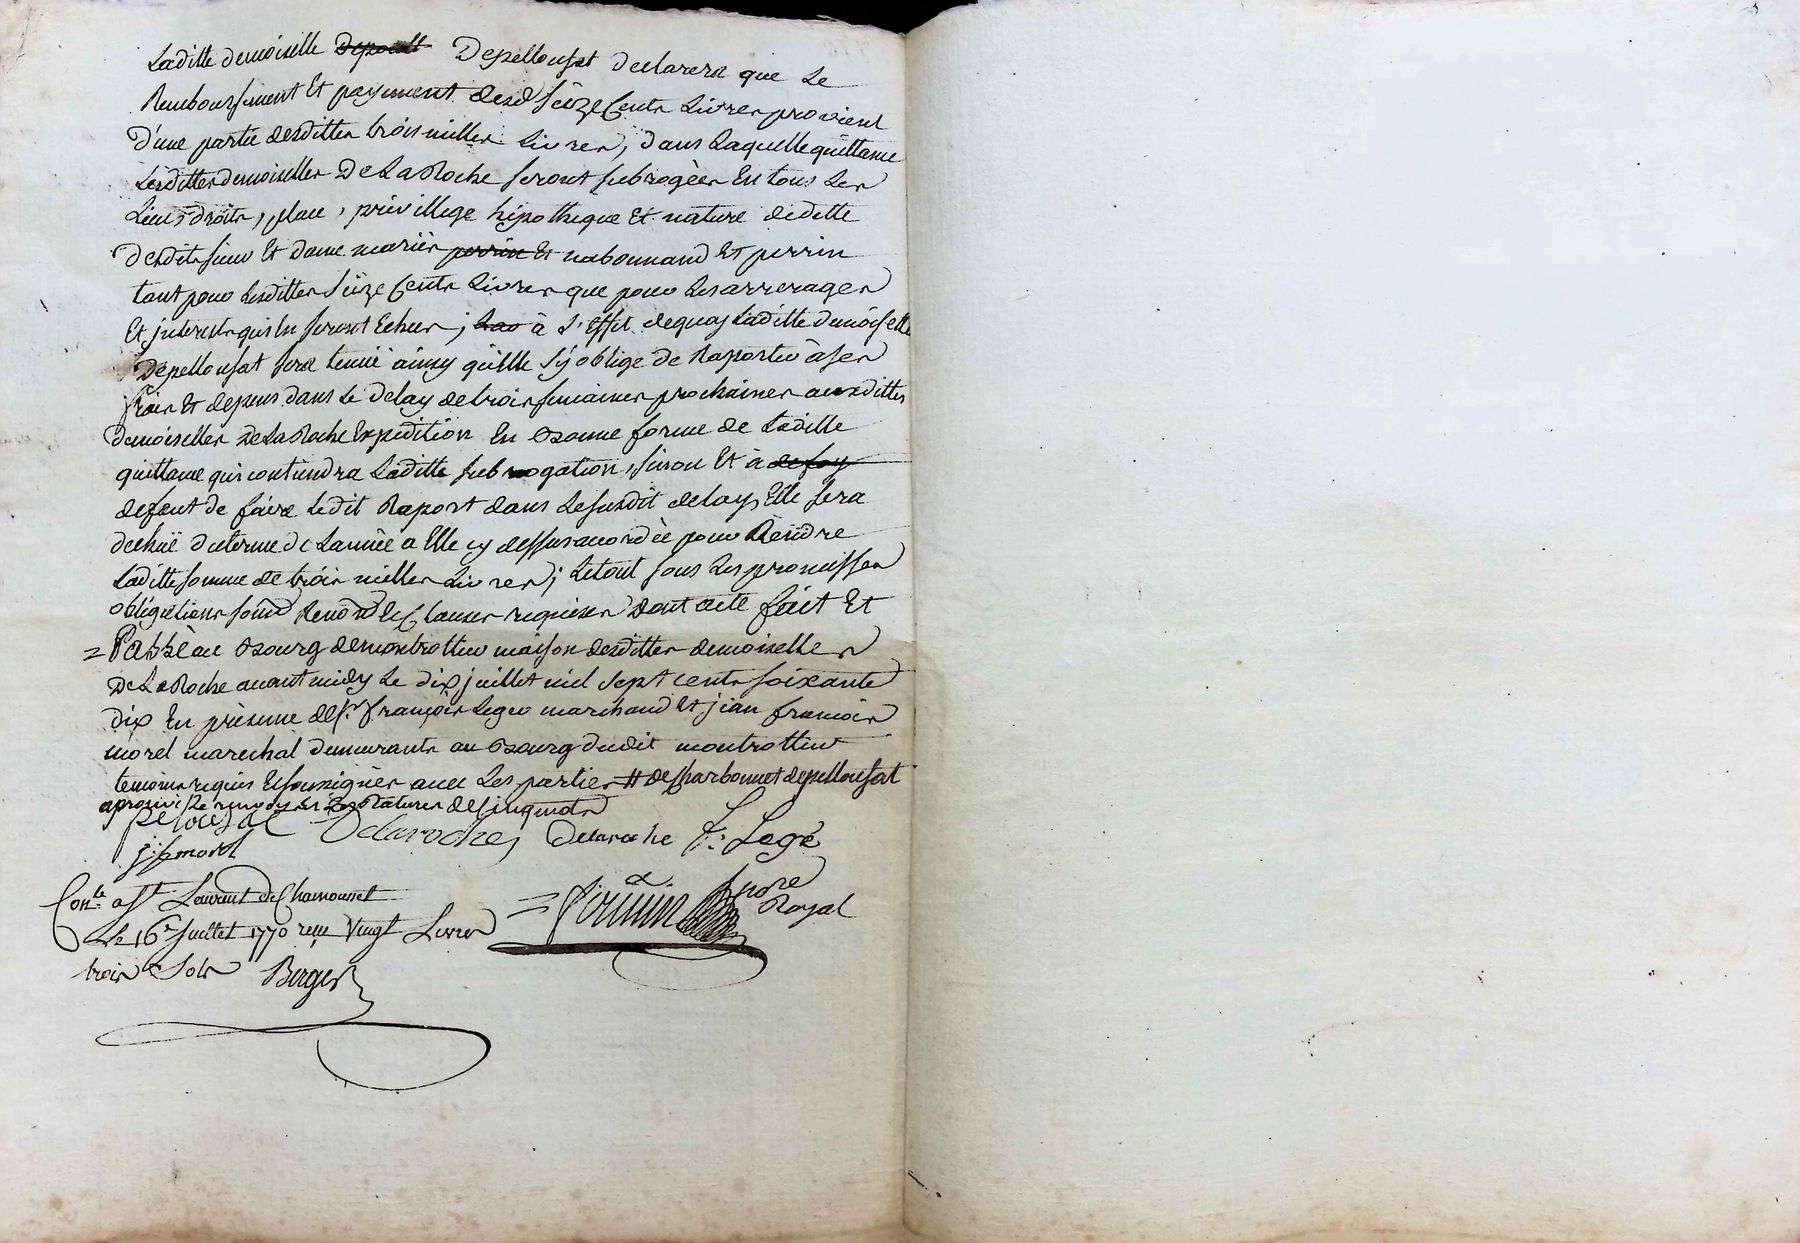 Laditte demoiselle Depelloux Depellousat declarera que Le
Remboursement Et payement desd Seize Cents Livres provient
d'une partie desdittes trois milles Livres, dans Laquelle quittance
Lesdittes demoiselles De La Roche seront subrogées En tous Les
Lieu, droits, place, privillege hipotheque Et nature de dette
desdits sieur Et dame mariés perrin Et nabonnand Et perrin
tant pour Lesdittes Seize Cents Livres que pour Les arrerages
Et interets qui En seront Echus; à L'Effet dequoy Laditte demoiselle
Depellousat sera tenüe ainsy qu'elle s'y oblige de Raporter à ses
frais Et depens dans Le Delay de trois semaines prochaines auxdittes
demoiselles De La Roche Expedition En bonne forme de Laditte
quittance qui contiendra Laditte subrogation, sinon Et à defay
defaut de faire Ledit Raport dans Le susdit delay, Elle sera
dechüe du terme de L'année a Elle cy dessus accordée pour Rendre
Laditte somme de trois milles Livres; Le tout sous Les promisses
obligations soumd Renond Et Clauses requises dont acte fait Et
= Passé au bourg de montrottier maison desdittes demoiselles
De La Roche avant midy Le dix juillet mil sept cents soixante
dix En présence de sr. françois Leger marchand Et jean francois
morel marechal demeurants au bourg dudit montrottier
temoins requis Et soussignés avec Les parties # de Charbonnet depellousat
aprouvé Le renvoy Et Les Ratures de Cinq mots
pelousat Delaroche Delaroche f. Legé
j f morel
Conlé a St Laurent de Chamousset
Le 16e Juillet 1770 reçu Vingt Livres
trois Sols Berger
= nore
Royal